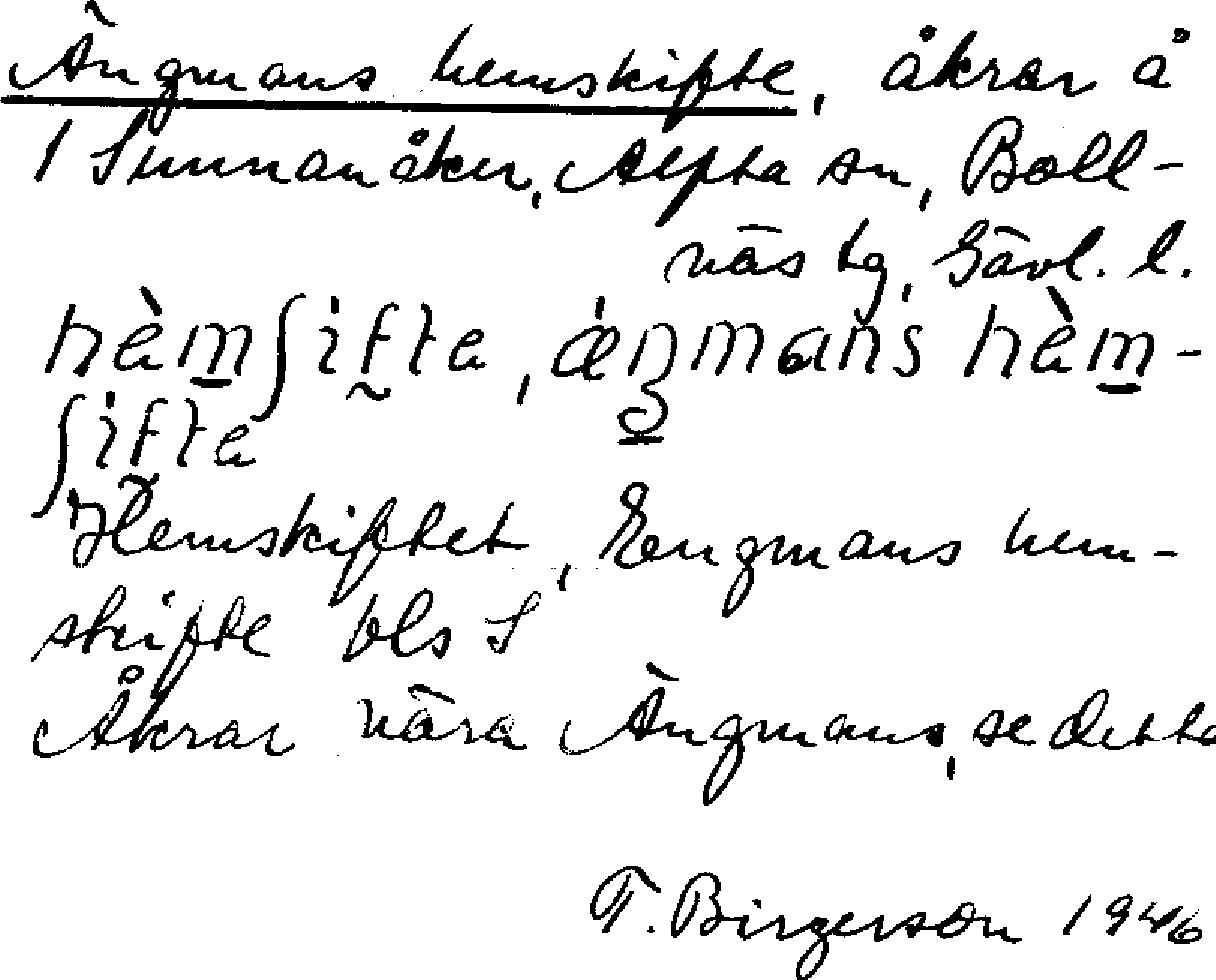 Ängmans hemskifte, åkrar å
1 Sunnanåker, Alfta sn, Boll-
näs tg, Gävl. l.
hèm̲ʃifta, æŋmans hèm̲-
ʃifta
Hemskiftet, Engmans hem-
skifte bls S
Åkrar nära Ängmans, se detta
T. Birgerson 1946